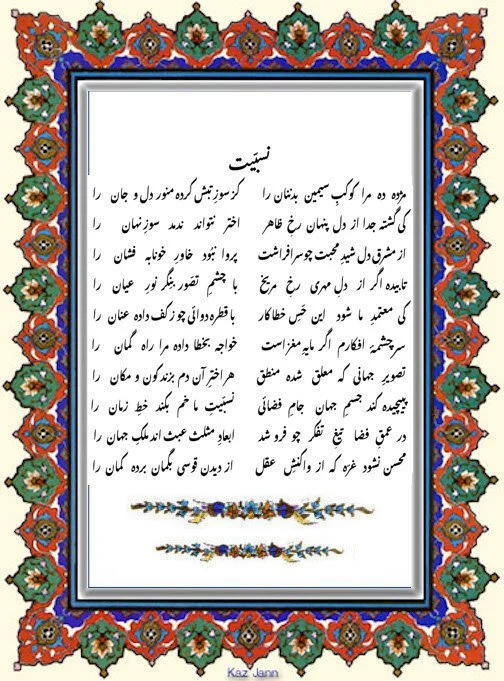 نسبیّت
مژده ده مرا کوکبِ سیمین بدنان را    کز سوزِ تپش کرده منور دل و جان را
کی گشته جدا از دل پنهان رخِ ظاهر    اختر نتواند ندمد سوزِ نهان را
از مشرق دل شیدِ محبت چو سرافراشت    پروا نبُود خاورِ خونابه فشان را
تابیده اگر از دلِ مهری رخِ مریخ    با چشمِ تصور بنگر نورِ عیان را
کی معتمدِ ما شود این حَسِ خطاکار    با قطره دوائی چو ز کف داده عنان را
سرچشمۀ افکارم اگر مایه مغز است    خواجه بخطا داده مرا راه گمان را
تصویرِ جهانی که معلق شده منطق    هر اختر آن دم بزند کون و مکان را
پیچیده کند جسمِ جهان جامِ فضائی    نسبیّتِ ما خم بکند خطِ زمان را
در عمقِ فضا تیغِ تفکر چو فرو شد    ابعادِ مثلث عبث اند ملکِ جهان را
محسن نشود غره که از واکنشِ عقل    از دیدن قوسی بگمان برده کمان را
Kaz Jann